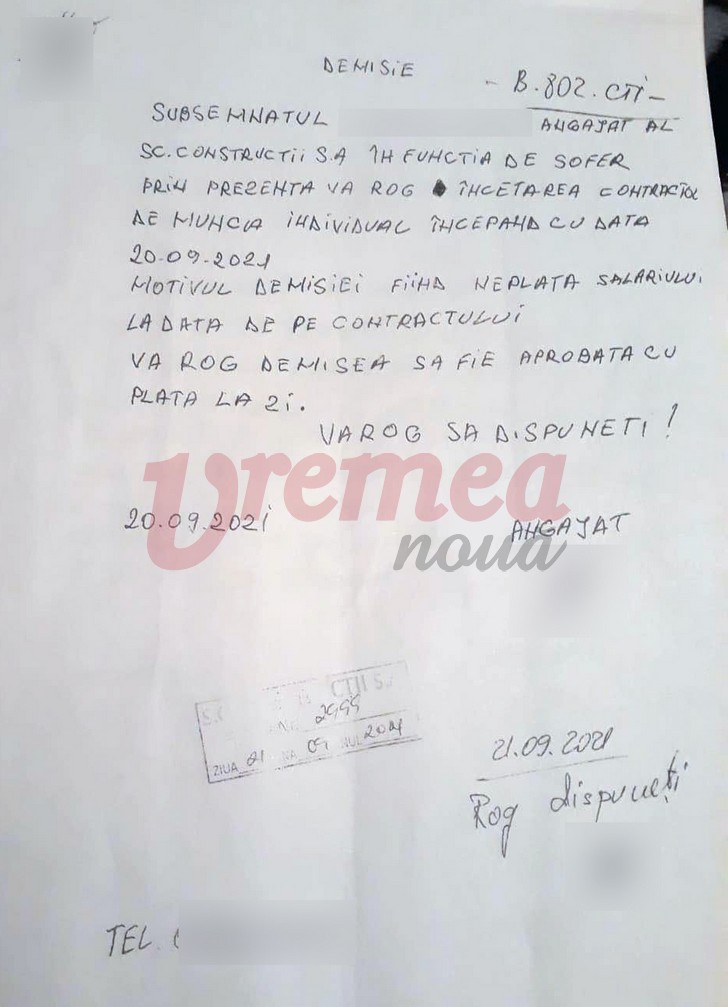 DEMISIE
- B.802.CTI -
SUBSEMNATUL
ANGAJAT AL
SC.CONSTRUCTII S.A ÎN FUNCTIA DE SOFER
PRIN PREZENTA VA ROG ÎNCETAREA CONTRACTUL
DE MUNCIA INDIVIDUAL ÎNCEPAND CU DATA
20.09.2021
MOTIVUL DEMISIEI FIIND NEPLATA SALARIULUI
LA DATA DE PE CONTRACTULUI
VA ROG DEMISEA SA FIE APROBATA CU
PLATA LA ZI.
VA ROG SA DISPUNETI!
Vremea
nouă
20.09.2021
ANGAJAT
CTII S.
2999
ZIUA 21 09 2021
21.09.2021
Rog dispuneți
TEL. (